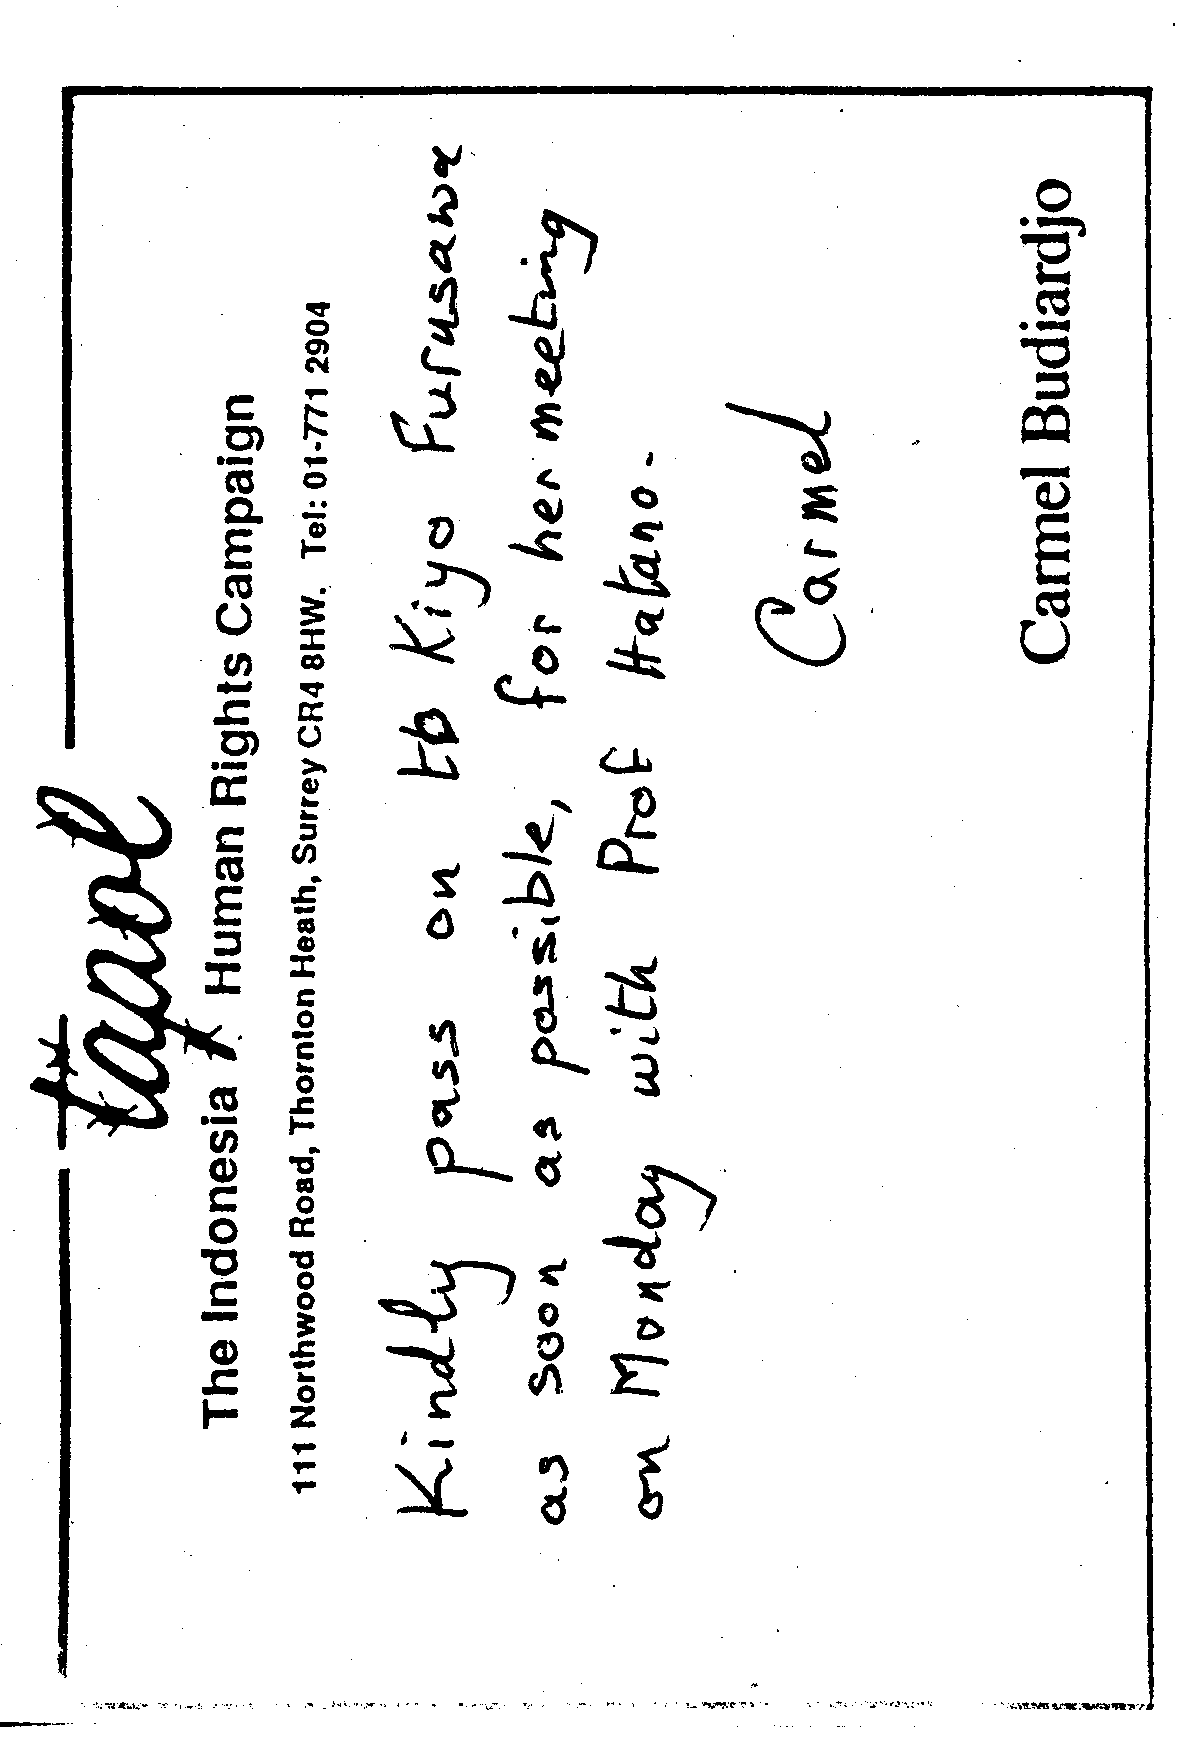 tapol
The Indonesia Human Rights Campaign
111 Northwood Road, Thornton Heath, Surrey CR4 8HW. Tel: 01-771 2904
Kindly pass on to Kiyo Furusawa
as soon as possible, for her meeting
on Monday with Prof Hatano.
Carmel
Carmel Budiardjo